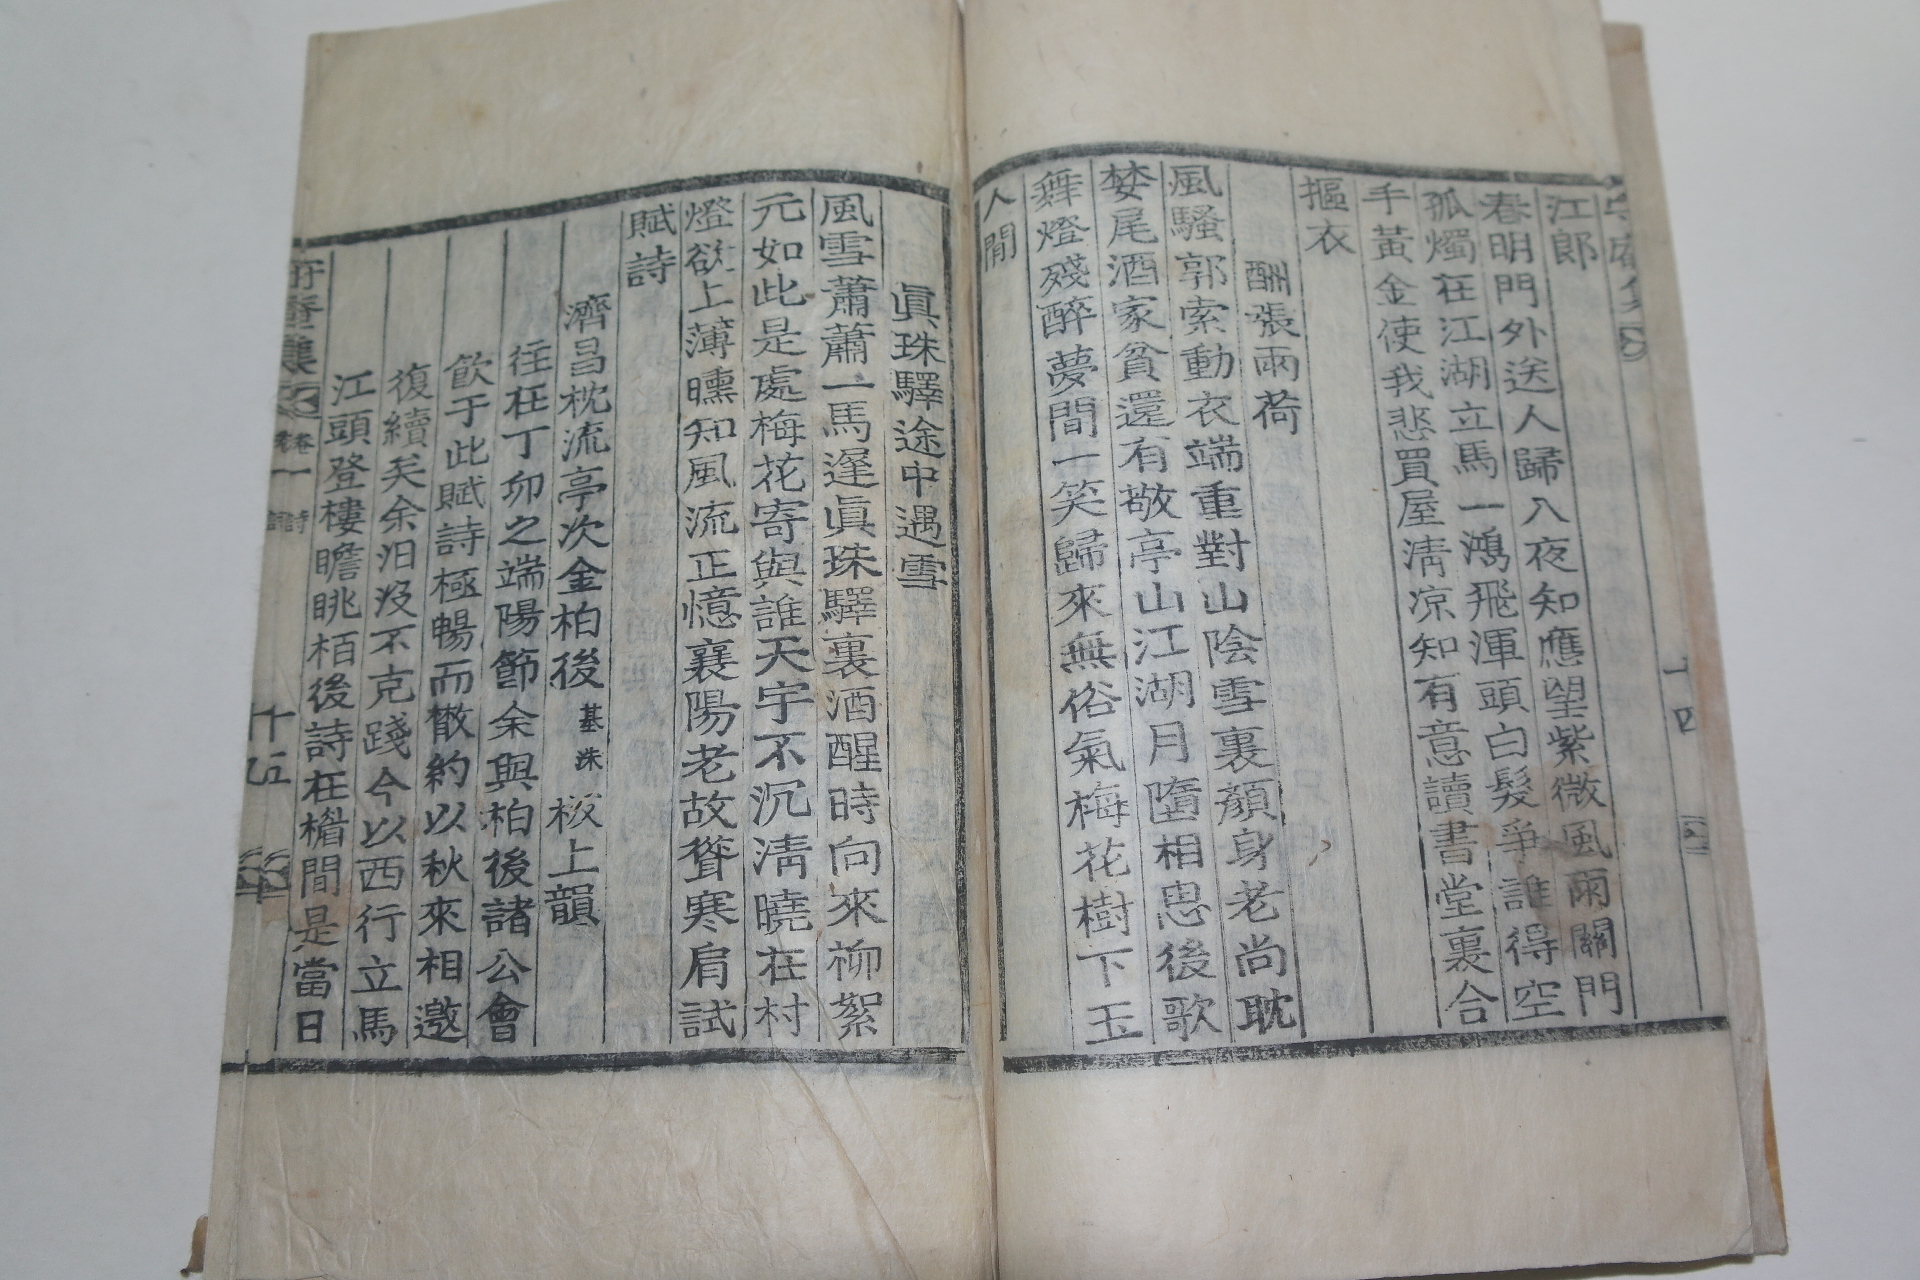 江郎
春明門外送人歸入夜知應望紫微風雨關門
孤燭在江湖立馬一鴻飛渾頭白髮爭誰得空
手黃金使我悲買屋淸凉知有意讀書堂裏合
摳衣
酬張雨荷
風騷郭索動衣端重對山陰雪裏顔身老尚耽
婪尾酒家貧還有敬亭山江湖月墮相思後歌
舞燈殘醉夢間一笑歸來無俗氣梅花樹下玉
人間
十四
眞珠驛途中遇雪
風雪蕭蕭一馬遲眞珠驛裏酒醒時向來柳絮
元如此是處梅花寄與誰天宇不沉淸曉在村
燈欲上薄曛知風流正憶襄陽老故聳寒肩試
賦詩
濟昌枕流亭次金柏後基洙板上韻
往在丁卯之端陽節余與柏後諸公會
飮于此賦詩極暢而檄約以秋來相邀
復續矣余汨沒不克踐今以西行立馬
江頭登樓瞻眺栢後詩在楣間是當日
卷一 詩
十五